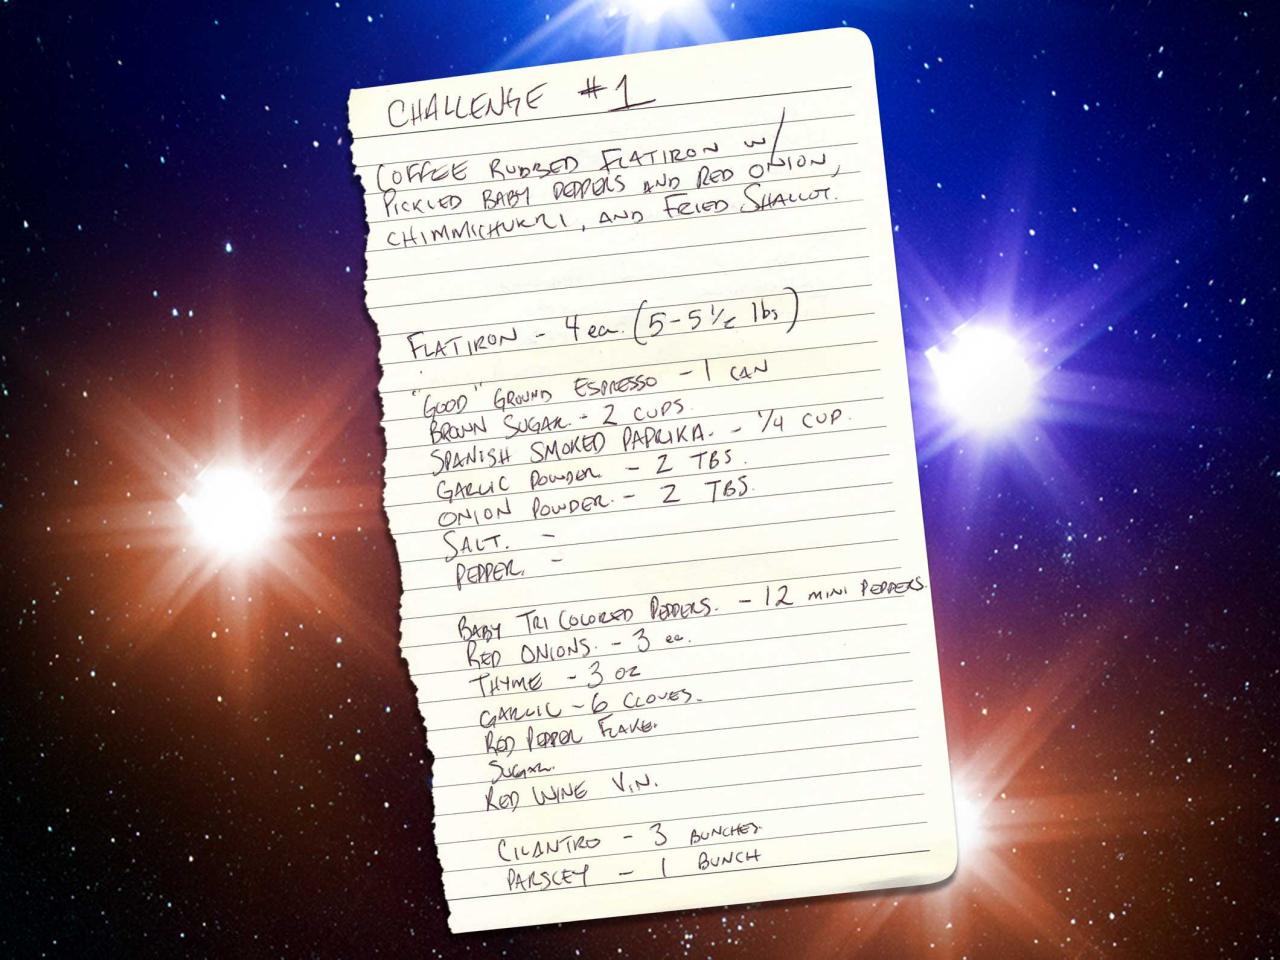 CHALLENGE #1
COFFEE RUBBED FLATIRON w/
PICKLED BABY PEPPERS AND RED ONION,
CHIMMICHURRI, AND FRIED SHALLOT.
FLATIRON - 4 ea. (5-5 1/2 lbs)
"GOOD" GROUND ESPRESSO - 1 CAN
BROWN SUGAR. - 2 CUPS.
SPANISH SMOKED PAPRIKA. - 1/4 CUP.
GARLIC POWDER - 2 TBS.
ONION POWDER. - 2 TBS.
SALT. -
PEPPER. -
BABY TRI COLORED PEPPERS. - 12 MINI PEPPERS.
RED ONIONS. - 3 ea.
THYME - 3 OZ
GARLIC - 6 CLOVES.
RED PEPPER FLAKE.
SUGAR.
RED WINE VIN.
CILANTRO - 3 BUNCHES.
PARSLEY - 1 BUNCH